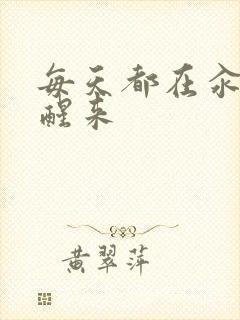 每天都在汆
醒来
黄翠萍